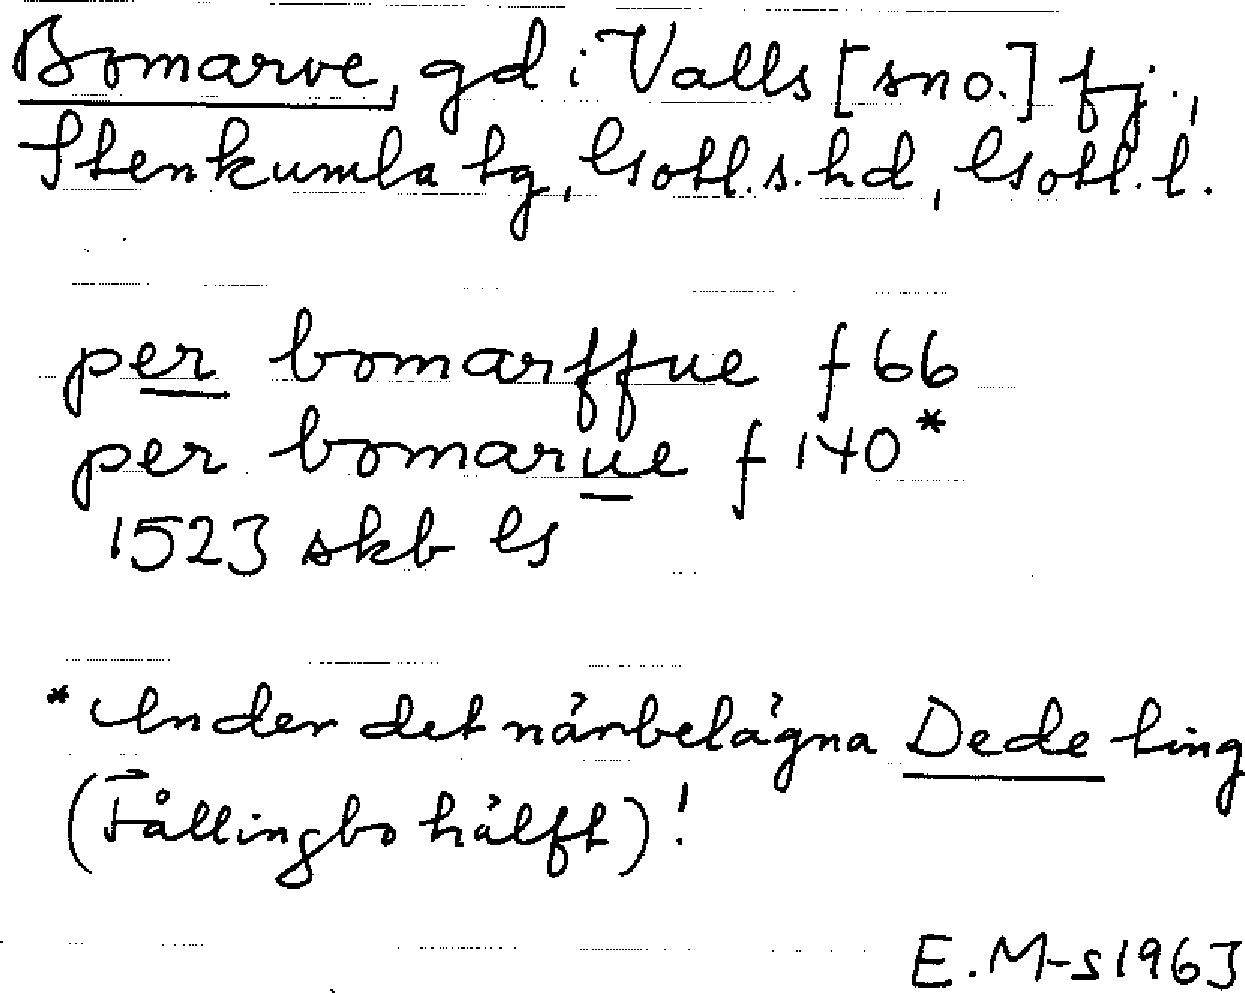 Bomarve, gd i Valls [sno.] fj.,
Stenkumla tg, Gotl. s. hd, Gotl. l.
per bomarffue f 66
per bomarue f 140*
1523 skb G
* Under det närbelägna Dede ting
(Fållingbo hälft)!
E. M-s 1963